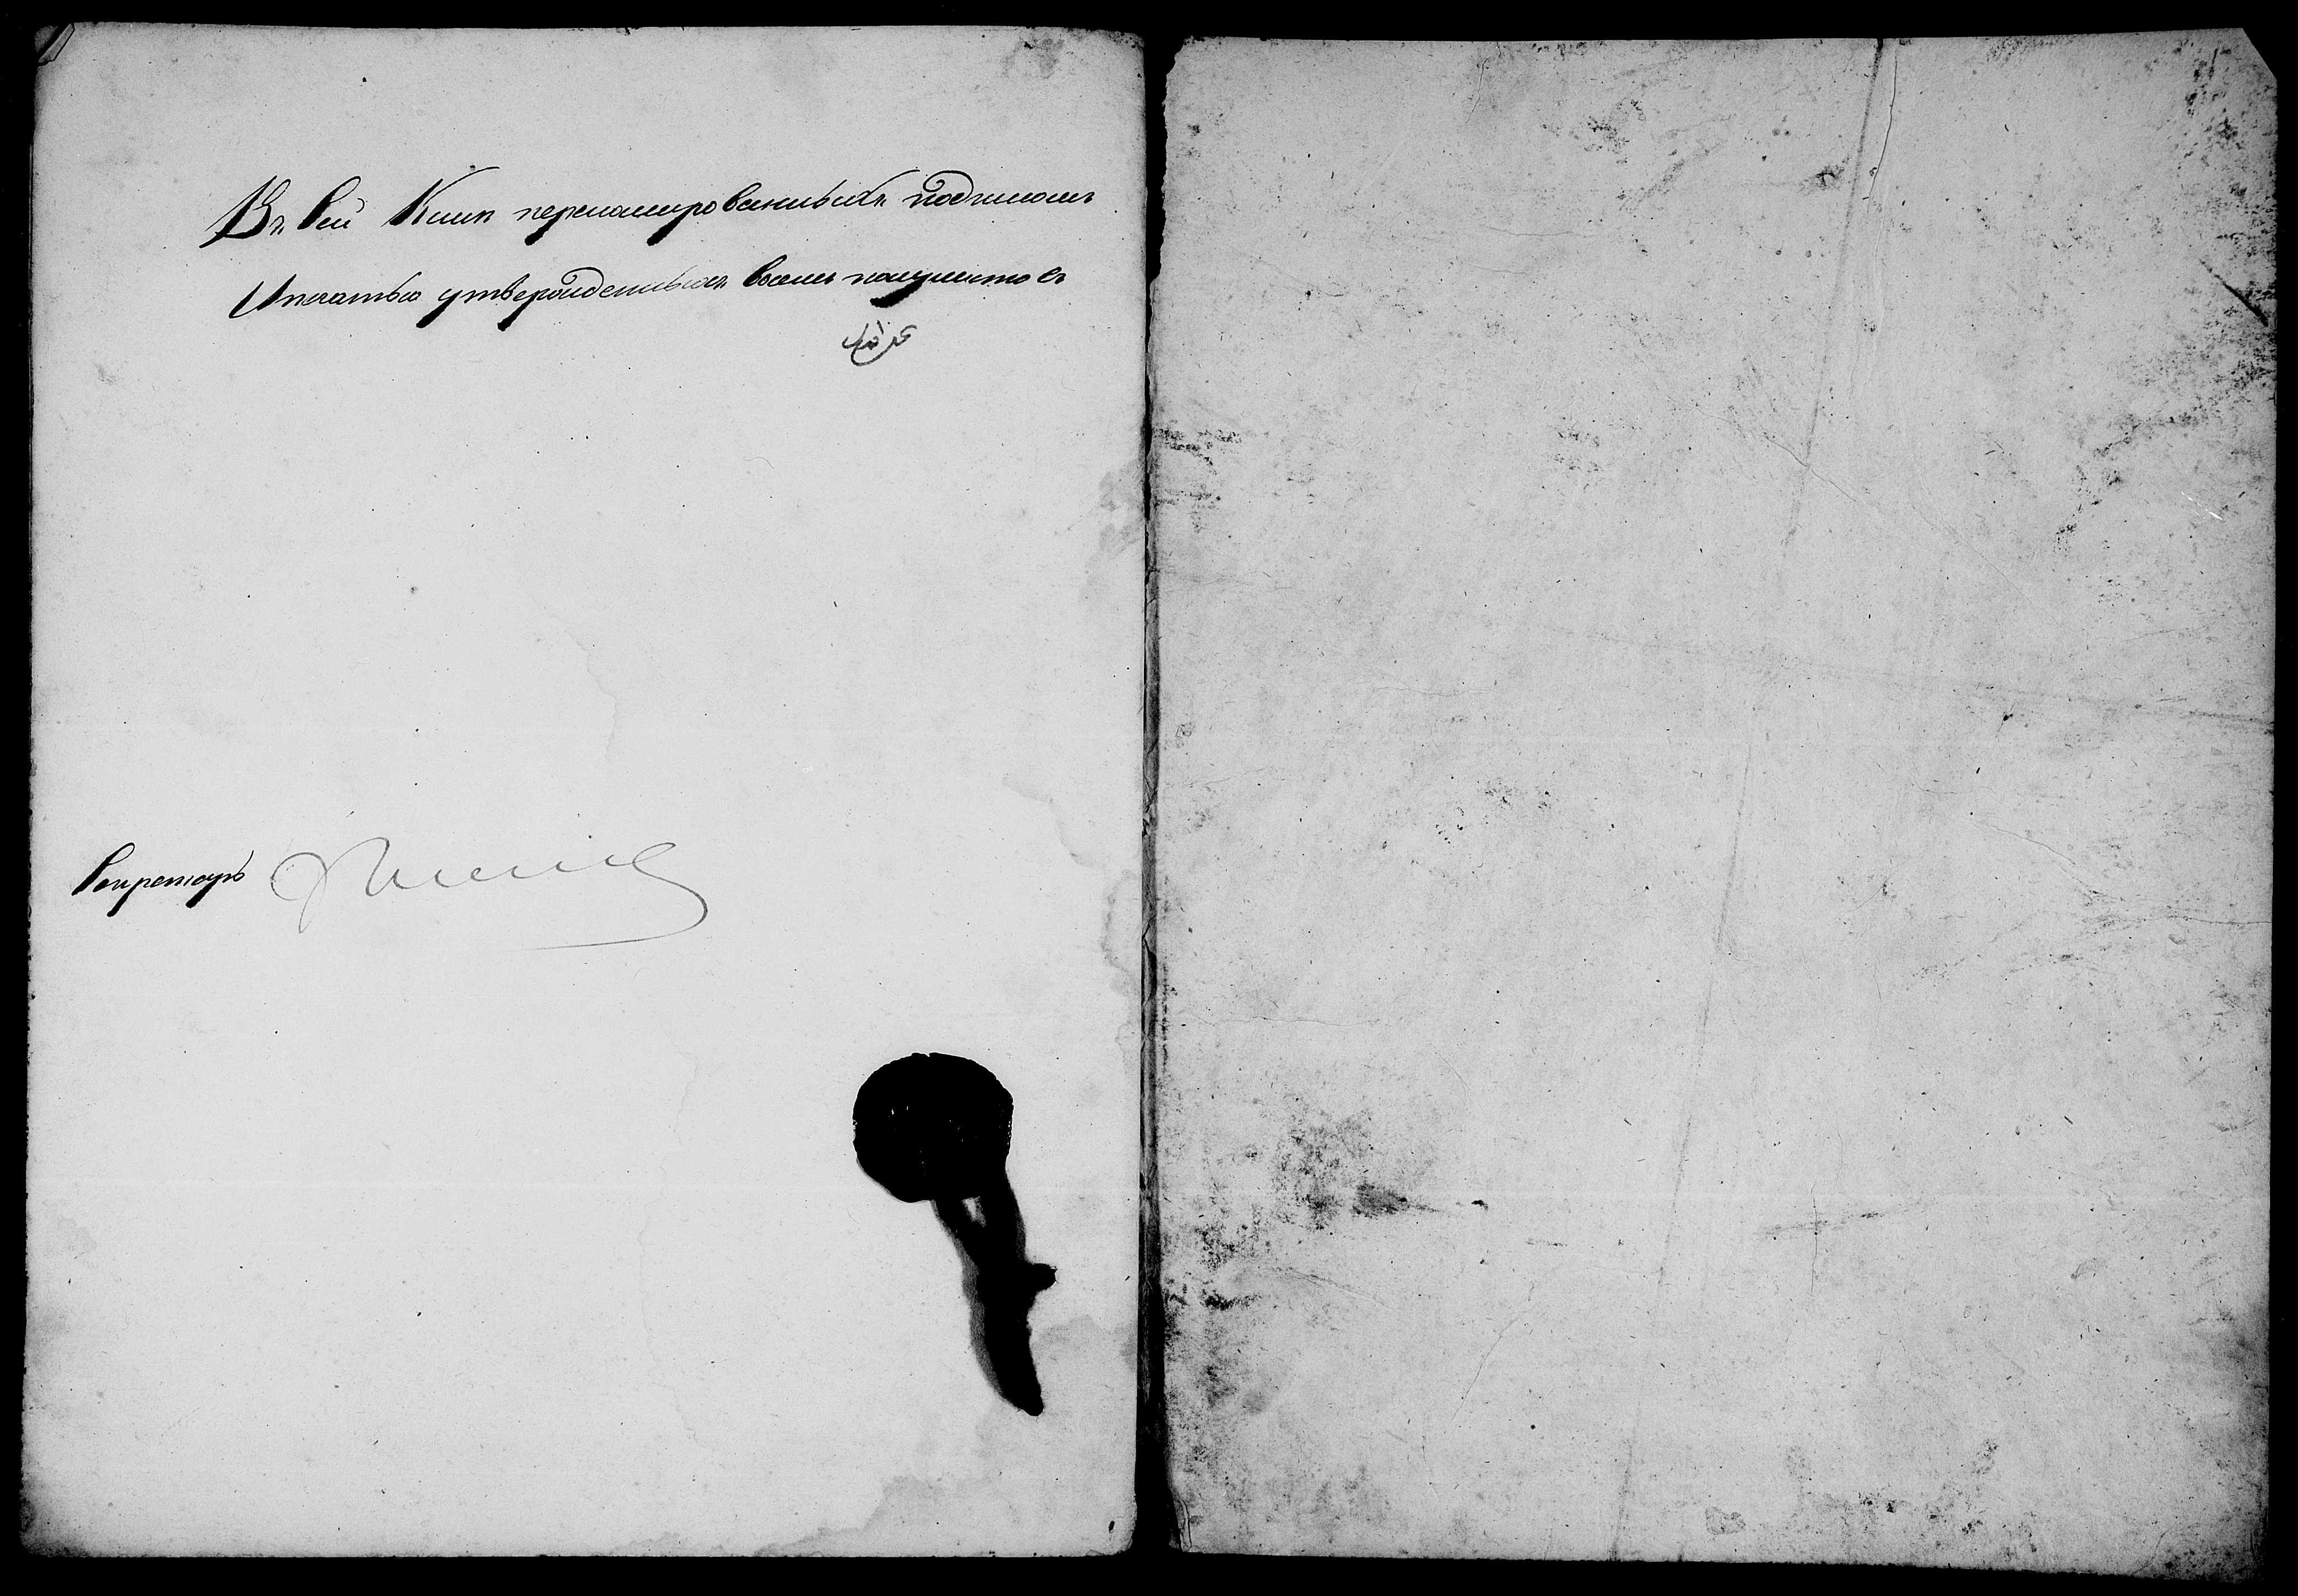 Въ сей Книгѣ перномерованныхъ подписомъ
И печатью утвержденныхъ восемь полулистовъ
Секретарь